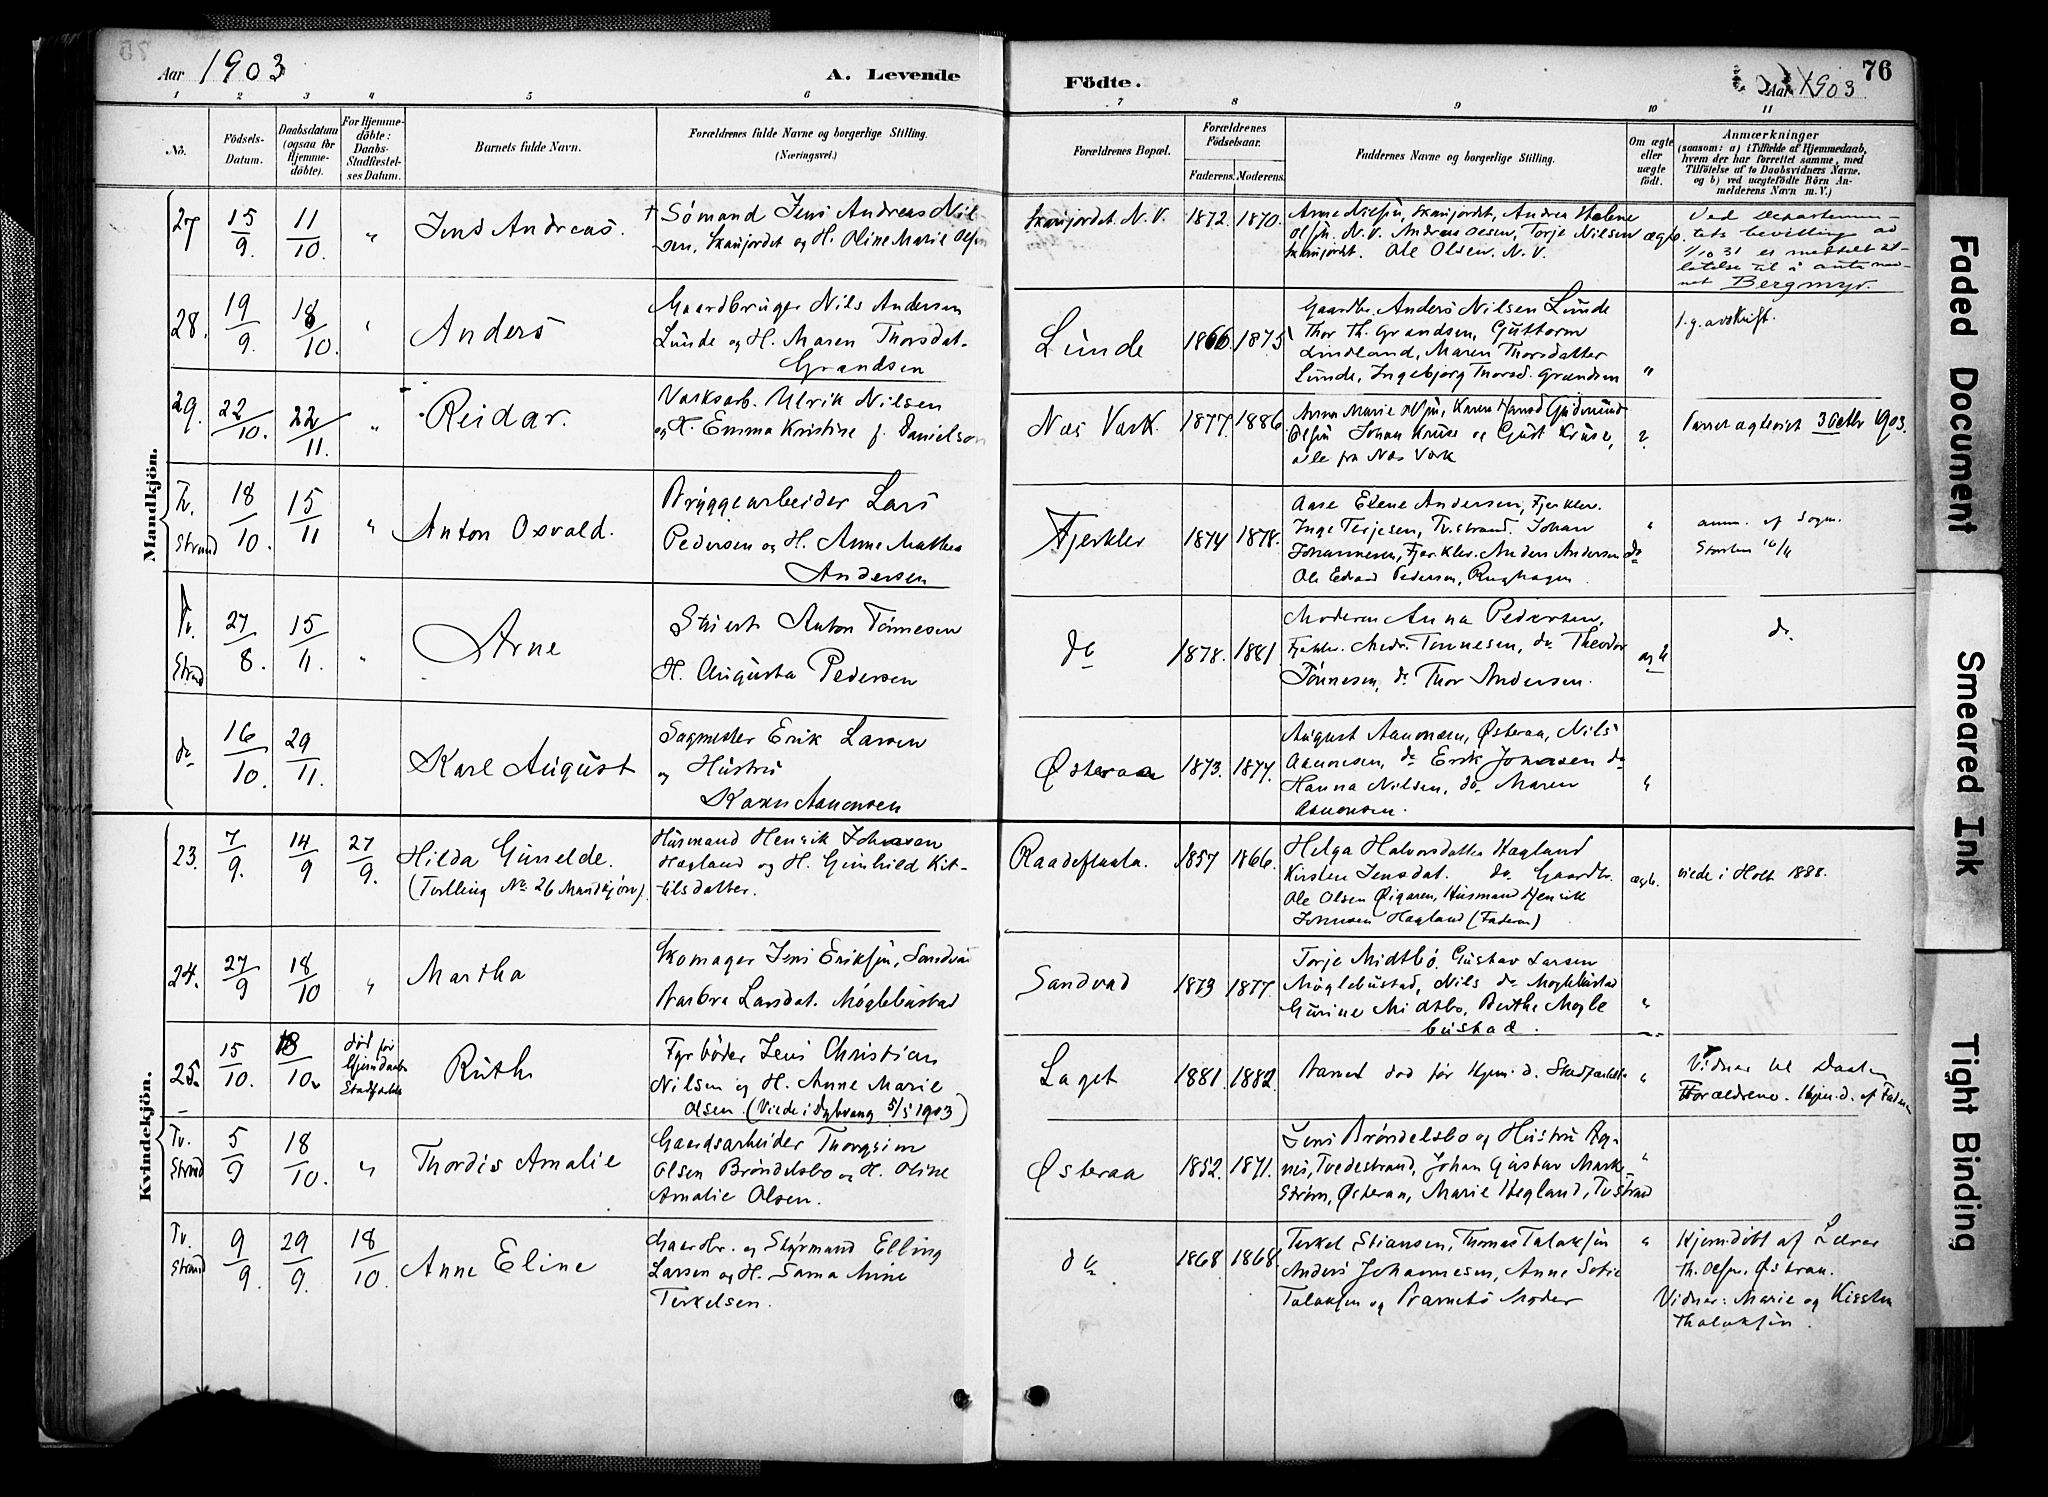 Aar 1903
A. Levende
Födte.
Aar 1903
76
1 2 3 4 5 6 7 8 9 10 11
No.
Födsels-
Datum.
Daabsdatum
(ogsaa for
Hjemme-
döbte).
For Hjemme-
döbte:
Daabs-
Stadfæstel-
ses Datum.
Barnets fulde Navn.
Forældrenes fulde Navne og borgerlige Stilling.
(Næringsvei.)
Forældrenes Bopæl.
Forældrenes
Födselsaar.
Faderens. Moderens.
Faddernes Navne og borgerlige Stilling.
Om ægte
eller
uægte
födt.
Anmærkninger
(saasom: a) i Tilfælde af Hjemmedaab,
hvem der har forrettet samme, med
Tilföielse af to Daabsvidners Navne.
og b) ved uægtefödte Börn An-
melderens Navn m. V.)
Mandkjön.
27 15/9. 11/10. " Jens Andreas.
† Sømand Jens Andreas Nil-
sen, Skaujordet og H. Oline Marie Olsen
Skaujordet N. V. 1872. 1870.
Arne Nilsen, Skaujordet, Andrea Helene
Olsen N. V. Andreas Olsen, Torje Nilsen
Skaujordet. Ole Olsen. N. V.
ægte.
Ved Departemen-
tets bevilling av
1/10 31 er meddelt til-
latelse til å anta nav-
net Bergmyr.
28. 19/9. 18/10. " Anders
Gaardbruger Nils Andersen
Lunde og H. Maren Thorsdat-
Grandsen
Lunde 1866 1875
Gaardbr. Anders Nilsen Lunde
Thor Th. Grandsen, Guttorm
Lindland, Maren Thorsdatter
Lunde, Ingebjorg Thorsd. Grandsen
"
f. g. avskrift.
29. 22/10. 22/11. " Reidar.
Værksarb. Ulrik Nilsen
og H. Emma Kristine f. Danielsen
Næs Værk. 1877. 1886.
Anna Marie Olsen, Karen
Olsen Johan Kruse og Gust Kruse,
alle fra Næs Værk
3 Octbr 1903.
Tv.
Strand 18/10. 15/11 " Anton Osvald.
Bryggearbeider Lars
Pedersen og H. Anne Mathea
Andersen
Fjerkler 1874 1878.
Aase Elene Andersen, Fjerkler.
Inge Terjesen, Tv.strand. Johan
Johannesen, Fjerkler. Anders Andersen
Ole Edvard Pedersen,
" do
anm. af Sogn.
16/11
Tv.
Strand 27/8. 15/11. " Arne
Anton Tønnesen
H. Augusta Pedersen
do 1878. 1881.
Moderen Anna Pedersen,
Fjerkler. Tønnesen, do Theodor
Tönnesen, do. Thor Andersen.
do.
do 16/10. 29/11. Karl August
Sagmester Erik Larsen
og Hustru
Karen Aanonsen
Østeraa 1873. 1877.
August Aanonsen, Østeraa, Nils
Aanonsen, do Erik Johnsen do
Hanna Nilsen, do. Maren
Aanonsen.
"
Kvindekjön.
23. 7/9. 14/9 27/9. Hilda Gunelde.
(Tvilling No. 26 Mandkjøn).
Husmand Henrik Johnsen
Hagland og H. Gunhild Kit-
tilsdatter.
Raadeflaata. 1857 1866.
Helga Halvorsdatter Hagland
Kirsten Jensdat. do Gaardbr.
Ole Olsen Øigaren, Husmand Henrik
Johnsen Hagland (Faderen)
ægte.
viede i Holt 1888.
24. 27/9 18/10 " Martha
Skomager Jens Eriksen, Sandvad
Barbra Larsdat. Møglebustad
Sandvad 1873 1877.
Torje Midtbø. Gustav Larsen
Møglebustad, Nils do Moglebustad
Gurine Midtbo, Berthe Mogle
bustad.
"
25. 15/10. 18/10. død før
Hjemdaabs
Stadfæstelse
Ruth
Fyrbøder Jens Christian
Nilsen og H. Anne Marie
Olsen. (Viede i Dybvaag 5/5 1903)
Laget 1881. 1882.
Barnet død før Hjem. d. Stadfæstelse
"
Vidner til Daaben
Forældrene. Hjem. d. af Faderen
Tv.
Strand 5/9 18/10. " Thordis Amalie
Gaardsarbeider Thorgrim
Olsen Brøndelsbo og H. Oline
Amalie Olsen.
Østeraa 1852. 1871.
Jens Brøndelsbo og Hustru Ag-
nes, Tvedestrand, Johan Gustav Mark-
Strøm, Østeraa, Marie Hegland, Tv.strand
"
Tv.
Strand 9/9. 29/9. 18/10. Anne Eline
Gaardbr. og Styrmand Elling
Larsen og H. Sama Anne
Terkelsen.
do 1868 1868.
Terkel Stiansen, Thomas Talaksen
Anders Johannesen, Anne Sofie
Talaksen og Barnets Moder
"
Hjemdöbt af Lærer
Th. Olsen, Østeraa.
Vidner: Marie og Kirsten
Thalaksen.
Faded Document
Smeared Ink
Tight Binding